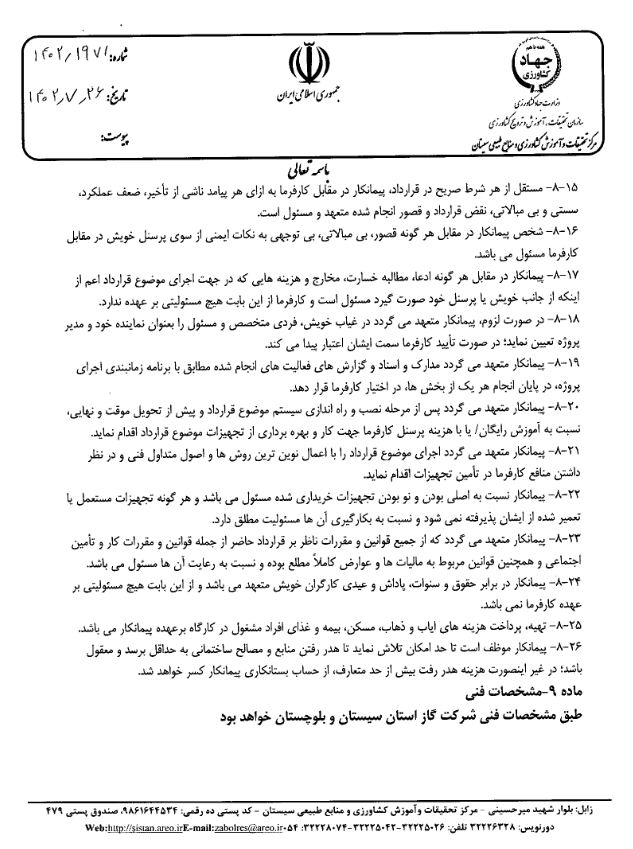 شماره: ۱۴۰۲/۱۹۷۱
همه با هم
جهاد
کشاورزی
جمهوری اسلامی ایران
تاریخ: ۱۴۰۲/۷/۲۶
وزارت جهاد کشاورزی
سازمان تحقیقات، آموزش و ترویج کشاورزی
پیوست:
مرکز تحقیقات و آموزش کشاورزی و منابع طبیعی سیستان
باسمه تعالی
۸-۱۵- مستقل از هر شرط صریح در قرارداد، پیمانکار در مقابل کارفرما به ازای هر پیامد ناشی از تأخیر، ضعف عملکرد،
سستی و بی مبالاتی، نقض قرارداد و قصور انجام شده متعهد و مسئول است.
۸-۱۶- شخص پیمانکار در مقابل هر گونه قصور، بی مبالاتی، بی توجهی به نکات ایمنی از سوی پرسنل خویش در مقابل
کارفرما مسئول می باشد.
۸-۱۷- پیمانکار در مقابل هر گونه ادعا، مطالبه خسارت، مخارج و هزینه هایی که در جهت اجرای موضوع قرارداد اعم از
اینکه از جانب خویش یا پرسنل خود صورت گیرد مسئول است و کارفرما از این بابت هیچ مسئولیتی بر عهده ندارد.
۸-۱۸- در صورت لزوم، پیمانکار متعهد می گردد در غیاب خویش، فردی متخصص و مسئول را بعنوان نماینده خود و مدیر
پروژه تعیین نماید؛ در صورت تأیید کارفرما سمت ایشان اعتبار پیدا می کند.
۸-۱۹- پیمانکار متعهد می گردد مدارک و اسناد و گزارش های فعالیت های انجام شده مطابق با برنامه زمانبندی اجرای
پروژه، در پایان انجام هر یک از بخش ها، در اختیار کارفرما قرار دهد.
۸-۲۰- پیمانکار متعهد می گردد پس از مرحله نصب و راه اندازی سیستم موضوع قرارداد و پیش از تحویل موقت و نهایی،
نسبت به آموزش رایگان/ یا با هزینه پرسنل کارفرما جهت کار و بهره برداری از تجهیزات موضوع قرارداد اقدام نماید.
۸-۲۱- پیمانکار متعهد می گردد اجرای موضوع قرارداد را با اعمال نوین ترین روش ها و اصول متداول فنی و در نظر
داشتن منافع کارفرما در تأمین تجهیزات اقدام نماید.
۸-۲۲- پیمانکار نسبت به اصلی بودن و نو بودن تجهیزات خریداری شده مسئول می باشد و هر گونه تجهیزات مستعمل یا
تعمیر شده از ایشان پذیرفته نمی شود و نسبت به بکارگیری آن ها مسئولیت مطلق دارد.
۸-۲۳- پیمانکار متعهد می گردد که از جمیع قوانین و مقررات ناظر بر قرارداد حاضر از جمله قوانین و مقررات کار و تأمین
اجتماعی و همچنین قوانین مربوط به مالیات ها و عوارض کاملاً مطلع بوده و نسبت به رعایت آن ها مسئول می باشد.
۸-۲۴- پیمانکار در برابر حقوق و سنوات، پاداش و عیدی کارگران خویش متعهد می باشد و از این بابت هیچ مسئولیتی بر
عهده کارفرما نمی باشد.
۸-۲۵- تهیه، پرداخت هزینه های ایاب و ذهاب، مسکن، بیمه و غذای افراد مشغول در کارگاه برعهده پیمانکار می باشد.
۸-۲۶- پیمانکار موظف است تا حد امکان تلاش نماید تا هدر رفتن منابع و مصالح ساختمانی به حداقل برسد و معقول
باشد؛ در غیر اینصورت هزینه هدر رفت بیش از حد متعارف، از حساب بستانکاری پیمانکار کسر خواهد شد.
ماده ۹-مشخصات فنی
طبق مشخصات فنی شرکت گاز استان سیستان و بلوچستان خواهد بود
زابل: بلوار شهید میرحسینی - مرکز تحقیقات وآموزش کشاورزی و منابع طبیعی سیستان - کد پستی ده رقمی: ۹۸۶۱۶۴۴۵۳۴، صندوق پستی ۴۷۹
دورنویس: ۳۲۲۲۶۳۲۸ تلفن: ۳۲۲۲۵۰۲۶-۳۲۲۲۵۰۴۲-۳۲۲۲۸۰۷۴ :۰۵۴ Web:http://sistan.areo.ir E-mail:zabolres@areo.ir